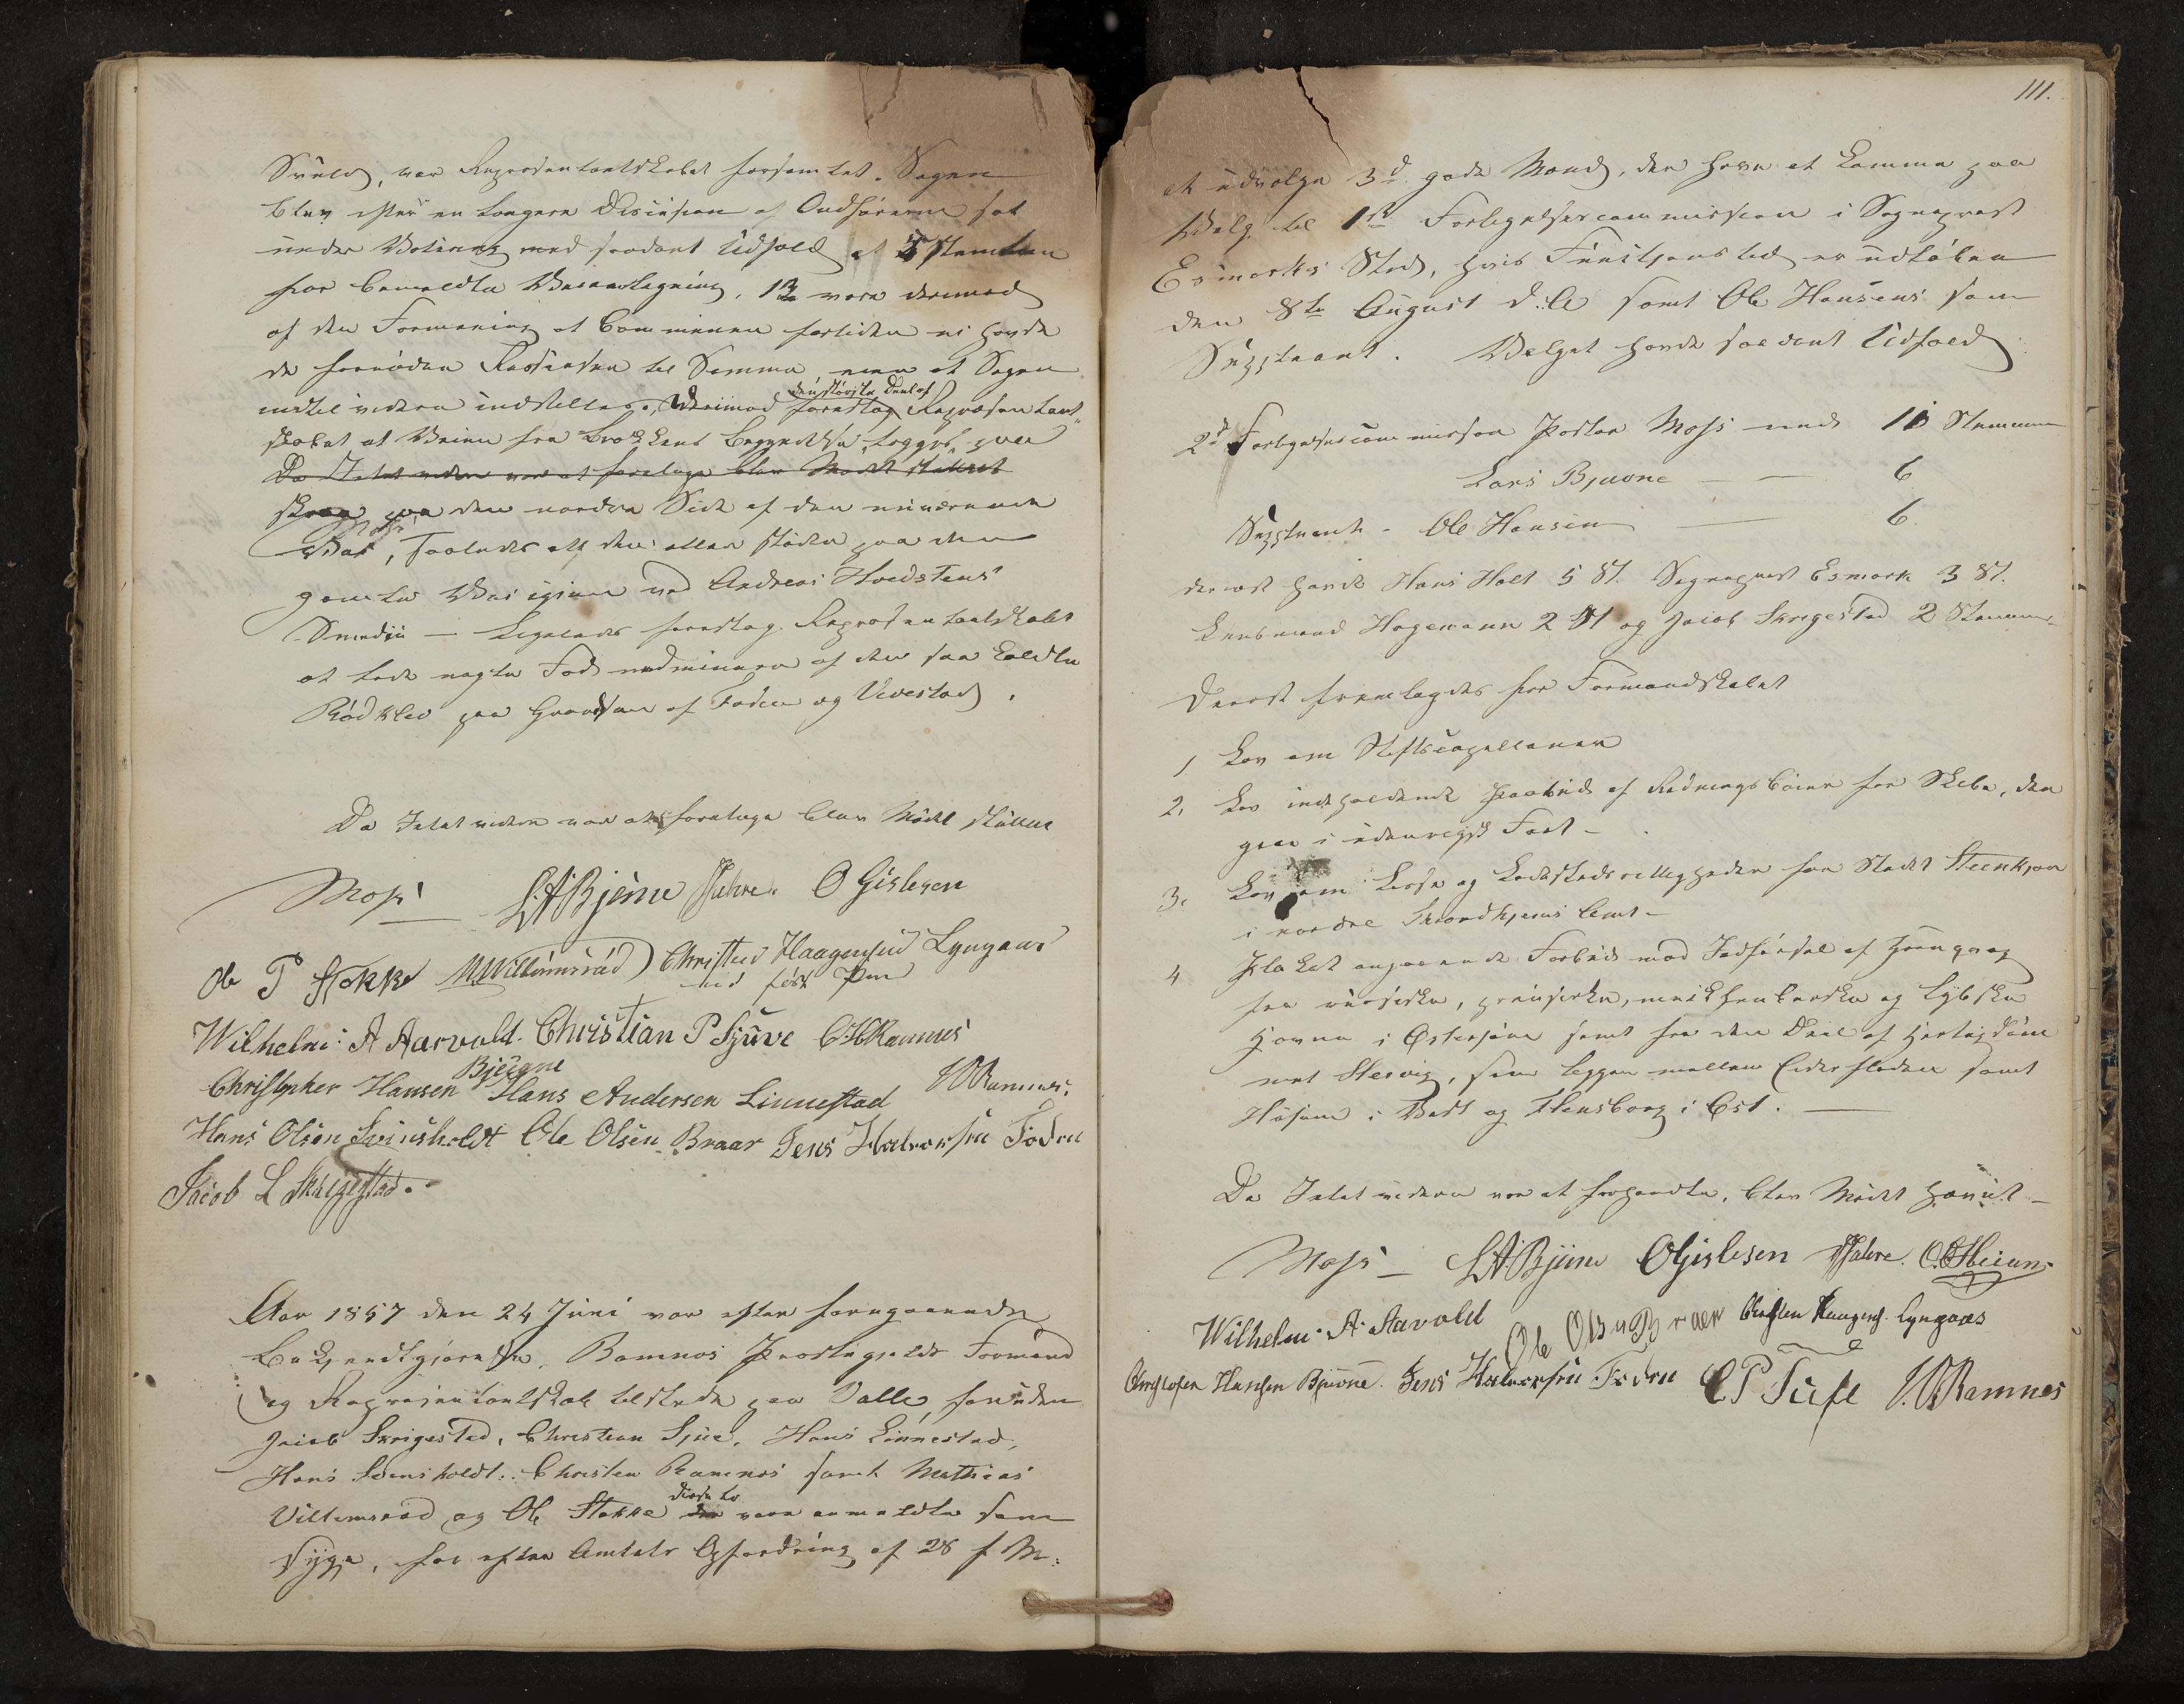 Svuld, var Repræsentantskabet forsamlet. Sagen
blev efter en længere Discusion af Ordførerne sat
under Votering med saadant Udfald at 5 stemte
for bemeldte Veianlægning, 13 vare derimod
af den Formening at Communen fortiden ei havde
de fornødne Ressurser til Samme, men at Sagen
indtil videre indstilles. Derimod foreslog den største Deel af Repræsentant-
skabet at Veien fra Brækkens Begyndelse lægges paa
Da Intet videre var at foretage blev Mødet sluttet
skraa paa den nordre Side af den nuværende
Vei, saaledes at den atter støder paa den
gamle Vei igjen ved Andreas Hvedstens
Smedju — Ligeledes foreslog Repræsentantskabet
at lade nogle Fod nedminere af den saa kaldte
Rødklev paa Grændsen af Foden og Vivestad.
Da Intet videre var at foretage blev Mødet sluttet
Moss LA Bjune Jahre. O Gislesen
Ole P Stokke M Willumsrød Christen Haagensen Lyngaas
med ført Pen
Wilhelm: A Aarvold. Christian P Sjuve C H Ramnes
Christopher Hansen Bjuone Hans Andersen Linnestad Ramnes.
Hans Olsen Svinsholdt Ole Olsen Braar Jens Halvorsen Foden
Jacob L Skrigestad.
Aar 1857 den 24 Juni var efter foregaaende
Bekjendtgjørelse, Ramnes Præstegjelds Formand
og Repræsentantskab tilstede paa Valle, foruden
Jacob Skrigestad, Christian Sjue, Hans Linnestad,
Hans Svensholdt, Christen Ramnes samt Mathias
Villumsrød og Ole Stokke disse to vare anmeldte som
syge, for efter Amtets Opfordring af 28 f M:
111.
at udvælge 3de gode Mænd, der have at komme paa
Valg til 1ste Forligelsescommission i Sognepræst
Esmarks Sted, hvis Funktjonstid er udløben
den 8de August d. A samt Ole Hansens som
Suppleant. Valget havde saadant Udfald
2d Forligelsescommissær Pastor Moss med 11 Stemmer
Lars Bjuone — — 6
Suppleant - Ole Hansen — 6.
dernæst havde Hans Holt 5 St. Sognepræst Esmark 3 St.
Lensmand Hagemann 2 St og Jacob Skrigestad 2 Stemmer.
Dernæst fremlagdes for Formandskabet
1 Lov om Stiftscapellaner
2, Lov indeholdende Paabud af Redningsbøier for Skibe, der
gaae i udenrigsk Fart -
3, Lov om Losse og Ladestedsrettigheder for Stedet Steenkjær
i nordre Trondhjems Amt -
4 Plakat angaaende Forbud mod Indførsel af Hornqvæg
fra russiske, preusiske, meklhenborske og Lybske
Havne i Østersøen samt fra den Deel af Hertugdøm-
met Slesvig, som ligger mellem Eiderfloden samt
Husum i Vest og Flensborg i Øst. —
Da Intet videre var at forhandle, blev Mødet hævet -
Moss - LA. Bjune O Gislesen Jahre.
Wilhelm: A. Aarvold Ole Olsen Braar Christen Haagens. Lyngaas
Christofer Hansen Bjuone. Jens Halvorsen Foden C P Sufe Ramnes